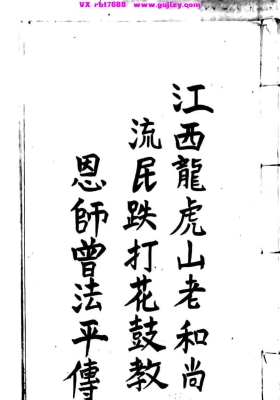 VX rbt7688 www.gujizy.com
江西龍虎山老和尚
流民跌打花鼓教
恩師曾法平傳